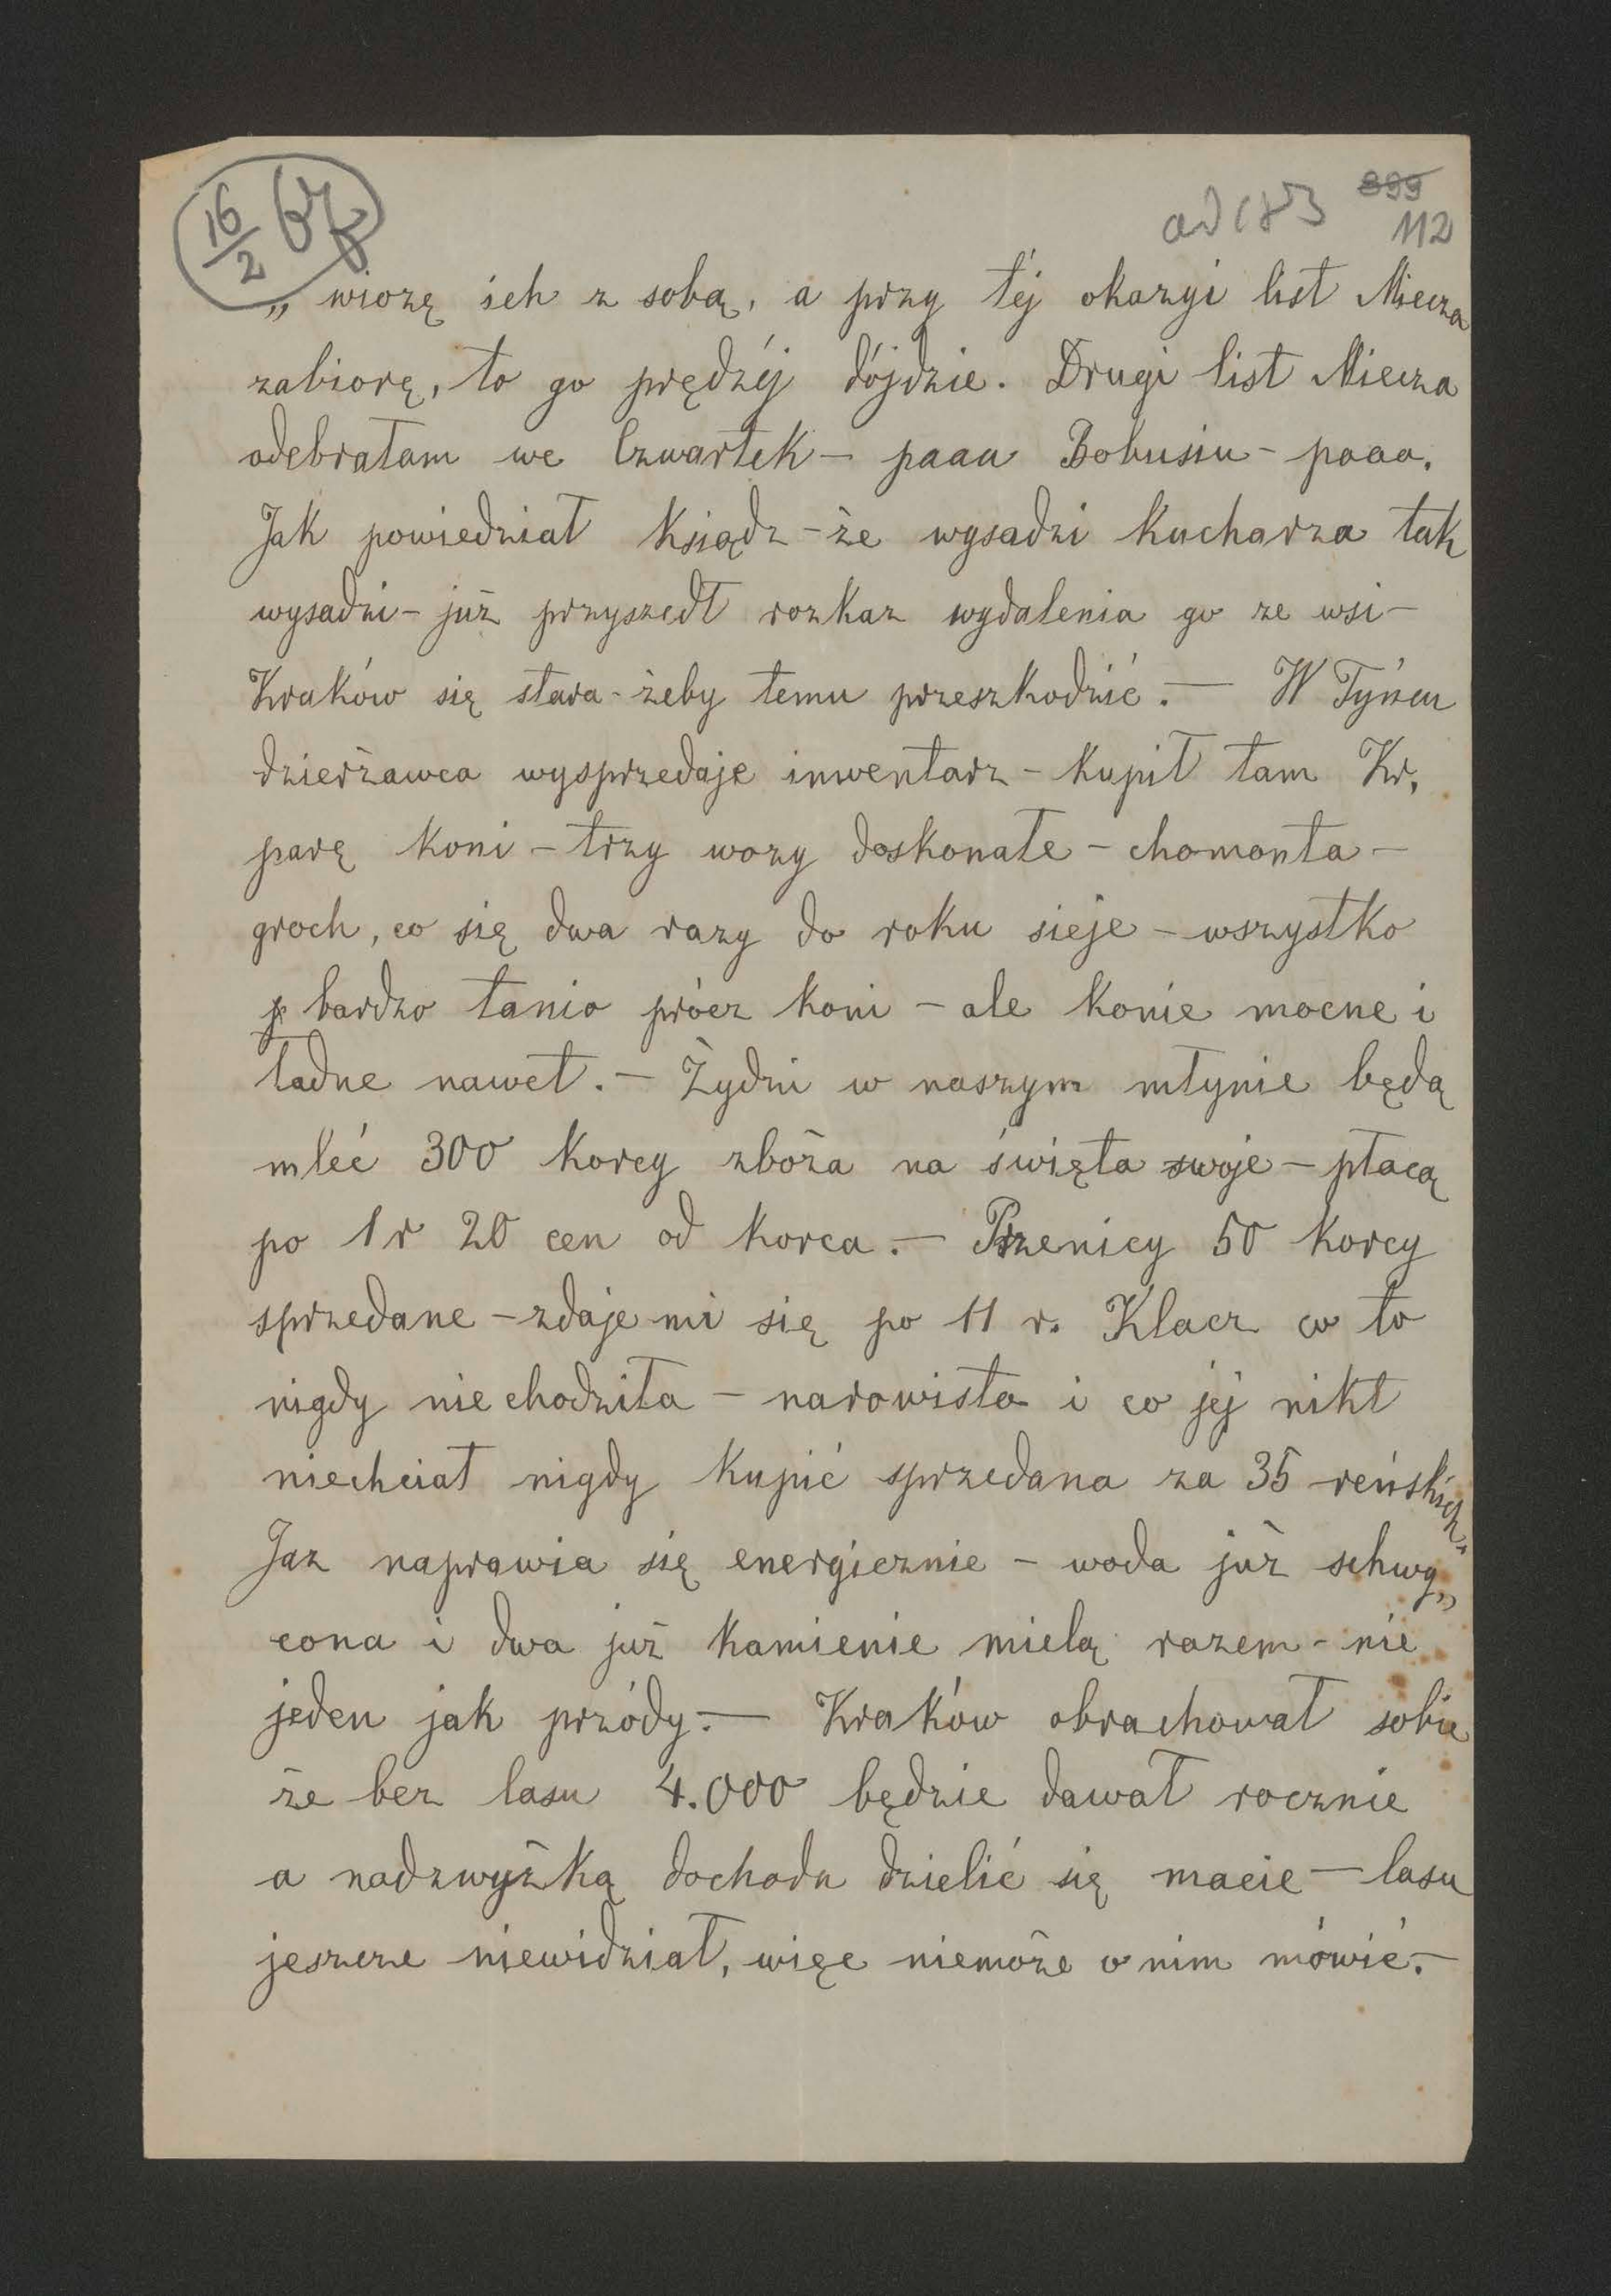 16/2 67
ad 183 899
112
„ wiozę ich z sobą, a przy téj okazyi list Miecza
zabiorę, to go prędzéj dójdzie. Drugi list Miecza
odebrałam we Czwartek – paaa Bobusiu – paaa.
Jak powiedział Ksiądz – że wysadzi Kucharza tak
wysadzi – już przyszedł rozkaz wydalenia go ze wsi –
Kraków się stara – żeby temu przeszkodzić. — W Tyńcu
dzierżawca wysprzedaje inwentarz – kupił tam Kr.
parę koni – trzy wozy doskonałe – chomonta –
groch, co się dwa razy do roku sieje – wszystko
bardzo tanio prócz koni – ale konie mocne i
ładne nawet. – Żydzi w naszym młynie będą
mleć 300 korcy zboża na święta swoje – płacą
po 1 r 20 cen od korca. – Pszenicy 50 korcy
sprzedane – zdaje mi się po 11 r. Klacz co to
nigdy nie chodziła – narowista i co jej nikt
niechciał nigdy kupić sprzedana za 35 reńskich.
Jaz naprawia się energicznie – woda już schwy„
cona i dwa już kamienie mielą razem – nie
jeden jak przódy. — Kraków obrachował sobie
że bez lasu 4.000 będzie dawał rocznie
a nadzwyżką dochodu dzielić się macie — lasu
jeszcze niewidział, więc niemoże o nim mówić. –